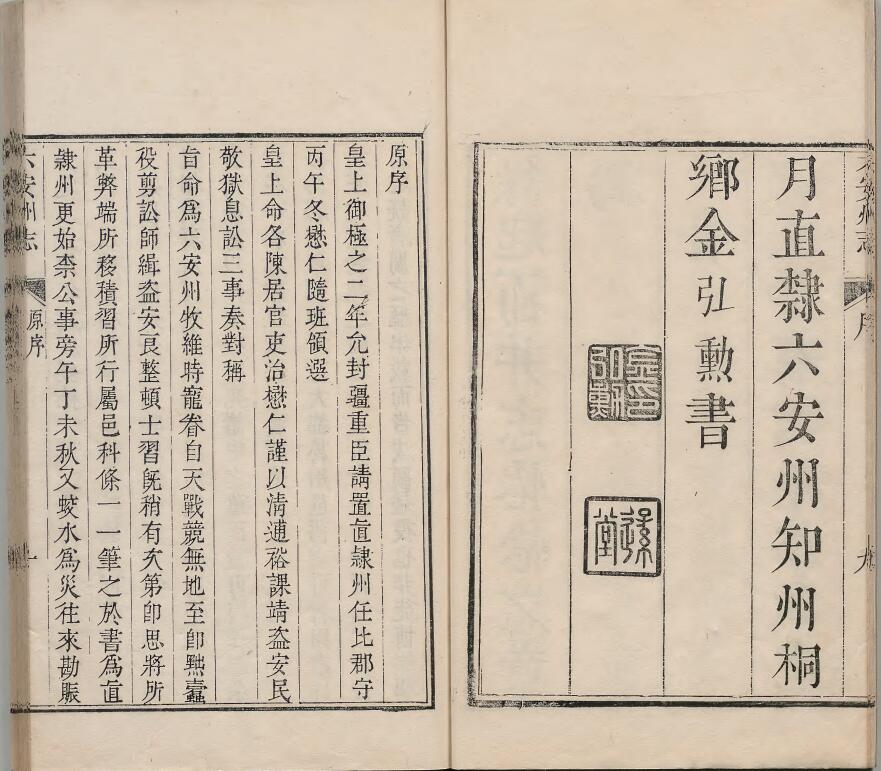 月直隸六安州知州桐
鄉金弘勲書
原序
皇上御極之二年允封疆重臣請置直隸州任比郡守
丙午冬懋仁隨班領選
皇上命各陳居官吏治懋仁謹以清逋裕課靖盗安民
敬獄息訟三事奏對稱
旨命爲六安州牧維時寵眷自天戰兢無地至即黜蠧
役剪訟師緝盗安良整頓士習既稍有次第即思將所
革弊端所移積習所行屬邑科條一一筆之於書爲直
隸州更始柰公事旁午丁未秋又蛟水爲災往來勘賑
六安州志
原序
一